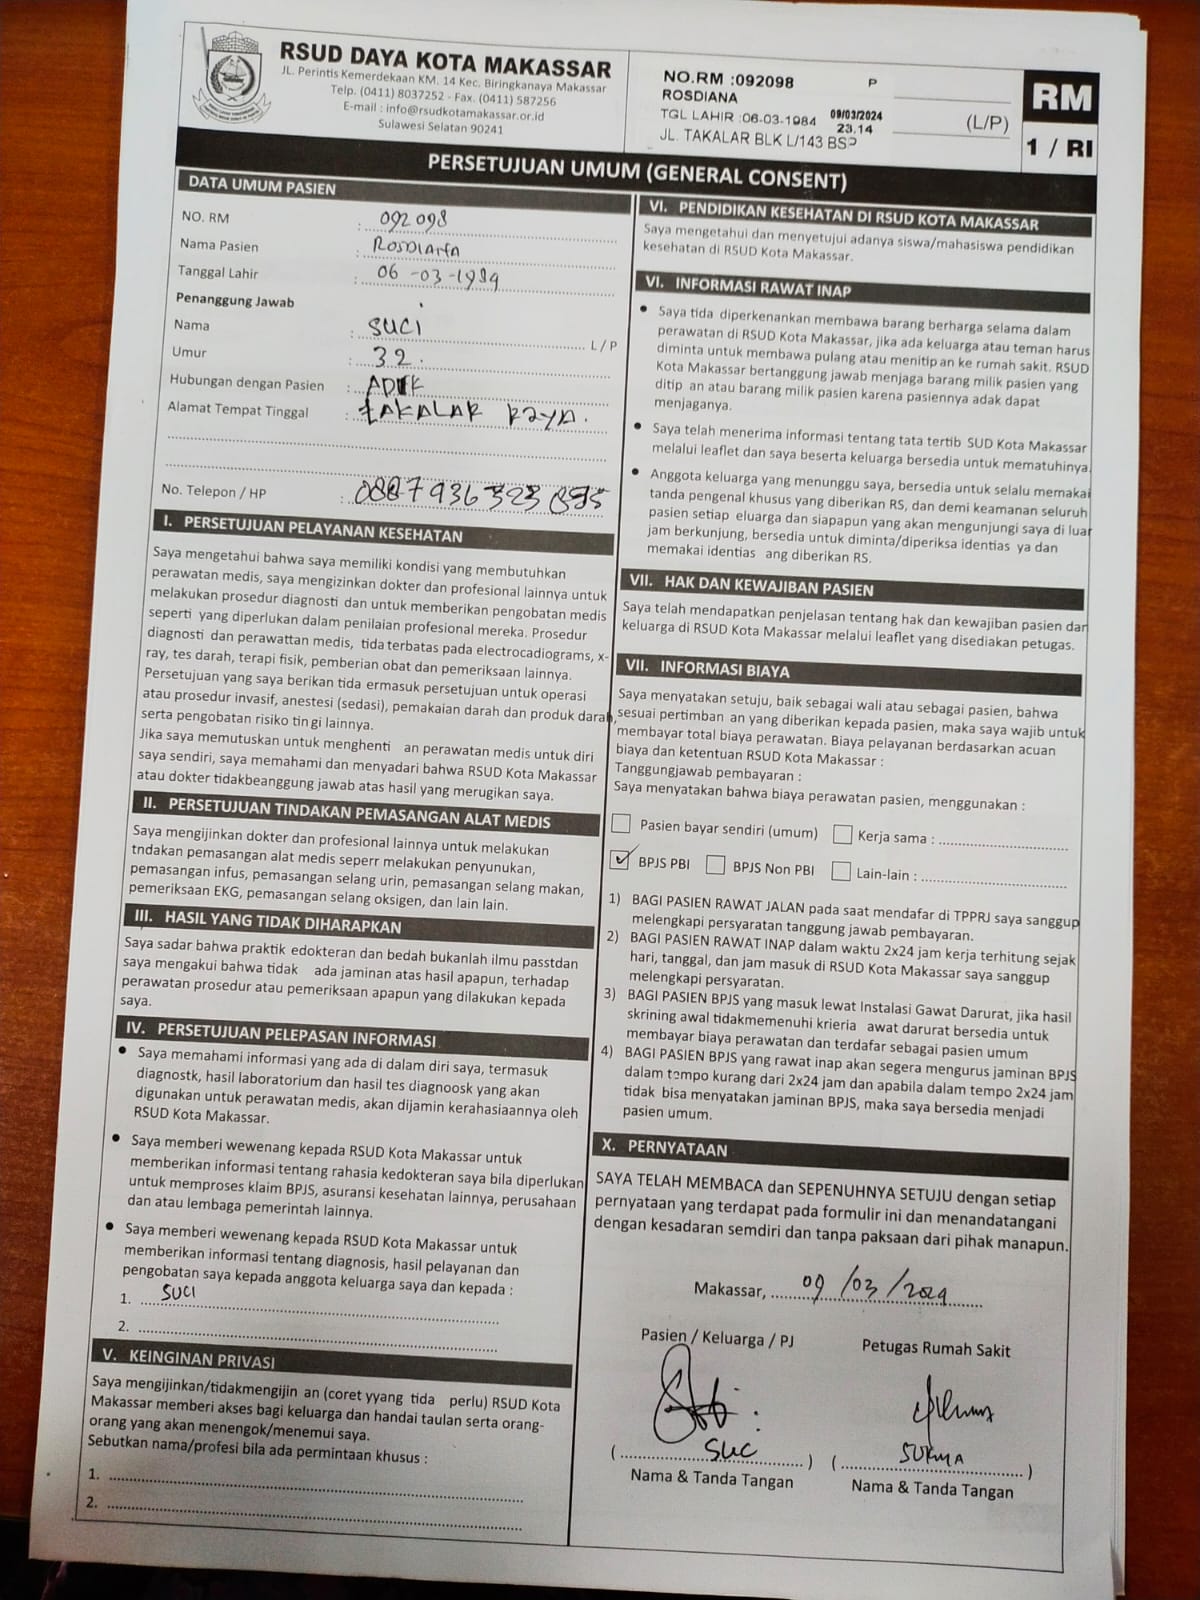 RSUD DAYA KOTA MAKASSAR
JL. Perintis Kemerdekaan KM. 14 Kec. Biringkanaya Makassar
Telp. (0411) 8037252 - Fax. (0411) 587256
E-mail : info@rsudkotamakassar.or.id
Sulawesi Selatan 90241
NO.RM :092098 P
ROSDIANA
TGL LAHIR :06-03-1984 09/03/2024 23.14
JL. TAKALAR BLK L/143 BSP
(L/P)
RM
1 / RI
PERSETUJUAN UMUM (GENERAL CONSENT)
DATA UMUM PASIEN
NO. RM : 092098
Nama Pasien : ROSDIANA
Tanggal Lahir : 06-03-1984
Penanggung Jawab
Nama : SUCI L / P
Umur : 32.
Hubungan dengan Pasien : ADIK
Alamat Tempat Tinggal : TAKALAR RAYA.
No. Telepon / HP :
I. PERSETUJUAN PELAYANAN KESEHATAN
Saya mengetahui bahwa saya memiliki kondisi yang membutuhkan
perawatan medis, saya mengizinkan dokter dan profesional lainnya untuk
melakukan prosedur diagnosti dan untuk memberikan pengobatan medis
seperti yang diperlukan dalam penilaian profesional mereka. Prosedur
diagnosti dan perawattan medis, tida terbatas pada electrocadiograms, x-
ray, tes darah, terapi fisik, pemberian obat dan pemeriksaan lainnya.
Persetujuan yang saya berikan tida ermasuk persetujuan untuk operasi
atau prosedur invasif, anestesi (sedasi), pemakaian darah dan produk darah,
serta pengobatan risiko tingi lainnya.
Jika saya memutuskan untuk menghenti an perawatan medis untuk diri
saya sendiri, saya memahami dan menyadari bahwa RSUD Kota Makassar
atau dokter tidakbeanggung jawab atas hasil yang merugikan saya.
II. PERSETUJUAN TINDAKAN PEMASANGAN ALAT MEDIS
Saya mengijinkan dokter dan profesional lainnya untuk melakukan
tndakan pemasangan alat medis seperr melakukan penyunukan,
pemasangan infus, pemasangan selang urin, pemasangan selang makan,
pemeriksaan EKG, pemasangan selang oksigen, dan lain lain.
III. HASIL YANG TIDAK DIHARAPKAN
Saya sadar bahwa praktik edokteran dan bedah bukanlah ilmu passtdan
saya mengakui bahwa tidak ada jaminan atas hasil apapun, terhadap
perawatan prosedur atau pemeriksaan apapun yang dilakukan kepada
saya.
IV. PERSETUJUAN PELEPASAN INFORMASI
• Saya memahami informasi yang ada di dalam diri saya, termasuk
diagnostk, hasil laboratorium dan hasil tes diagnoosk yang akan
digunakan untuk perawatan medis, akan dijamin kerahasiaannya oleh
RSUD Kota Makassar.
• Saya memberi wewenang kepada RSUD Kota Makassar untuk
memberikan informasi tentang rahasia kedokteran saya bila diperlukan
untuk memproses klaim BPJS, asuransi kesehatan lainnya, perusahaan
dan atau lembaga pemerintah lainnya.
• Saya memberi wewenang kepada RSUD Kota Makassar untuk
memberikan informasi tentang diagnosis, hasil pelayanan dan
pengobatan saya kepada anggota keluarga saya dan kepada :
1. SUCI
2.
V. KEINGINAN PRIVASI
Saya mengijinkan/tidakmengijin an (coret yyang tida perlu) RSUD Kota
Makassar memberi akses bagi keluarga dan handai taulan serta orang-
orang yang akan menengok/menemui saya.
Sebutkan nama/profesi bila ada permintaan khusus :
1.
2.
VI. PENDIDIKAN KESEHATAN DI RSUD KOTA MAKASSAR
Saya mengetahui dan menyetujui adanya siswa/mahasiswa pendidikan
kesehatan di RSUD Kota Makassar.
VI. INFORMASI RAWAT INAP
• Saya tida diperkenankan membawa barang berharga selama dalam
perawatan di RSUD Kota Makassar, jika ada keluarga atau teman harus
diminta untuk membawa pulang atau menitip an ke rumah sakit. RSUD
Kota Makassar bertanggung jawab menjaga barang milik pasien yang
ditip an atau barang milik pasien karena pasiennya adak dapat
menjaganya.
• Saya telah menerima informasi tentang tata tertib SUD Kota Makassar
melalui leaflet dan saya beserta keluarga bersedia untuk mematuhinya.
• Anggota keluarga yang menunggu saya, bersedia untuk selalu memakai
tanda pengenal khusus yang diberikan RS, dan demi keamanan seluruh
pasien setiap eluarga dan siapapun yang akan mengunjungi saya di luar
jam berkunjung, bersedia untuk diminta/diperiksa identias ya dan
memakai identias ang diberikan RS.
VII. HAK DAN KEWAJIBAN PASIEN
Saya telah mendapatkan penjelasan tentang hak dan kewajiban pasien dan
keluarga di RSUD Kota Makassar melalui leaflet yang disediakan petugas.
VII. INFORMASI BIAYA
Saya menyatakan setuju, baik sebagai wali atau sebagai pasien, bahwa
sesuai pertimban an yang diberikan kepada pasien, maka saya wajib untuk
membayar total biaya perawatan. Biaya pelayanan berdasarkan acuan
biaya dan ketentuan RSUD Kota Makassar :
Tanggungjawab pembayaran :
Saya menyatakan bahwa biaya perawatan pasien, menggunakan :
Pasien bayar sendiri (umum) Kerja sama :
✓ BPJS PBI BPJS Non PBI Lain-lain :
1) BAGI PASIEN RAWAT JALAN pada saat mendafar di TPPRJ saya sanggup
melengkapi persyaratan tanggung jawab pembayaran.
2) BAGI PASIEN RAWAT INAP dalam waktu 2x24 jam kerja terhitung sejak
hari, tanggal, dan jam masuk di RSUD Kota Makassar saya sanggup
melengkapi persyaratan.
3) BAGI PASIEN BPJS yang masuk lewat Instalasi Gawat Darurat, jika hasil
skrining awal tidakmemenuhi krieria awat darurat bersedia untuk
membayar biaya perawatan dan terdafar sebagai pasien umum
4) BAGI PASIEN BPJS yang rawat inap akan segera mengurus jaminan BPJS
dalam tempo kurang dari 2x24 jam dan apabila dalam tempo 2x24 jam
tidak bisa menyatakan jaminan BPJS, maka saya bersedia menjadi
pasien umum.
X. PERNYATAAN
SAYA TELAH MEMBACA dan SEPENUHNYA SETUJU dengan setiap
pernyataan yang terdapat pada formulir ini dan menandatangani
dengan kesadaran semdiri dan tanpa paksaan dari pihak manapun.
Makassar, 09/03/2024
Pasien / Keluarga / PJ Petugas Rumah Sakit
( SUC ) ( SUKMA )
Nama & Tanda Tangan Nama & Tanda Tangan